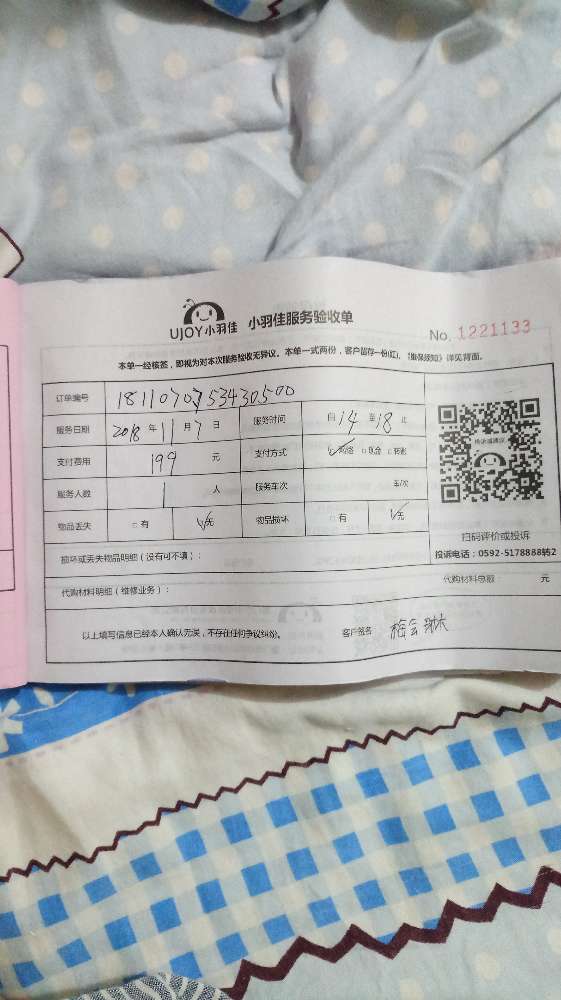 UJOY小羽佳 小羽佳服务验收单
No. 1221133
本单一经核签，即视为对本次服务验收无异议。本单一式两份，客户留存一份(红)，《维保须知》详见背面。
订单编号 1811070753430500
服务日期 2018 年 11 月 7 日 服务时间 自 14 至 18 止
支付费用 199 元 支付方式 ☑网络 □现金 □转账
服务人数 1 人 服务车次 车/次
物品丢失 □有 ☑无 物品损坏 □有 ☑无
扫码评价或投诉
投诉电话：0592-5178888转2
损坏或丢失物品明细（没有可不填）：
代购材料明细（维修业务）： 代购材料总额： 元
以上填写信息已经本人确认无误，不存在任何争议纠纷。 客户签名